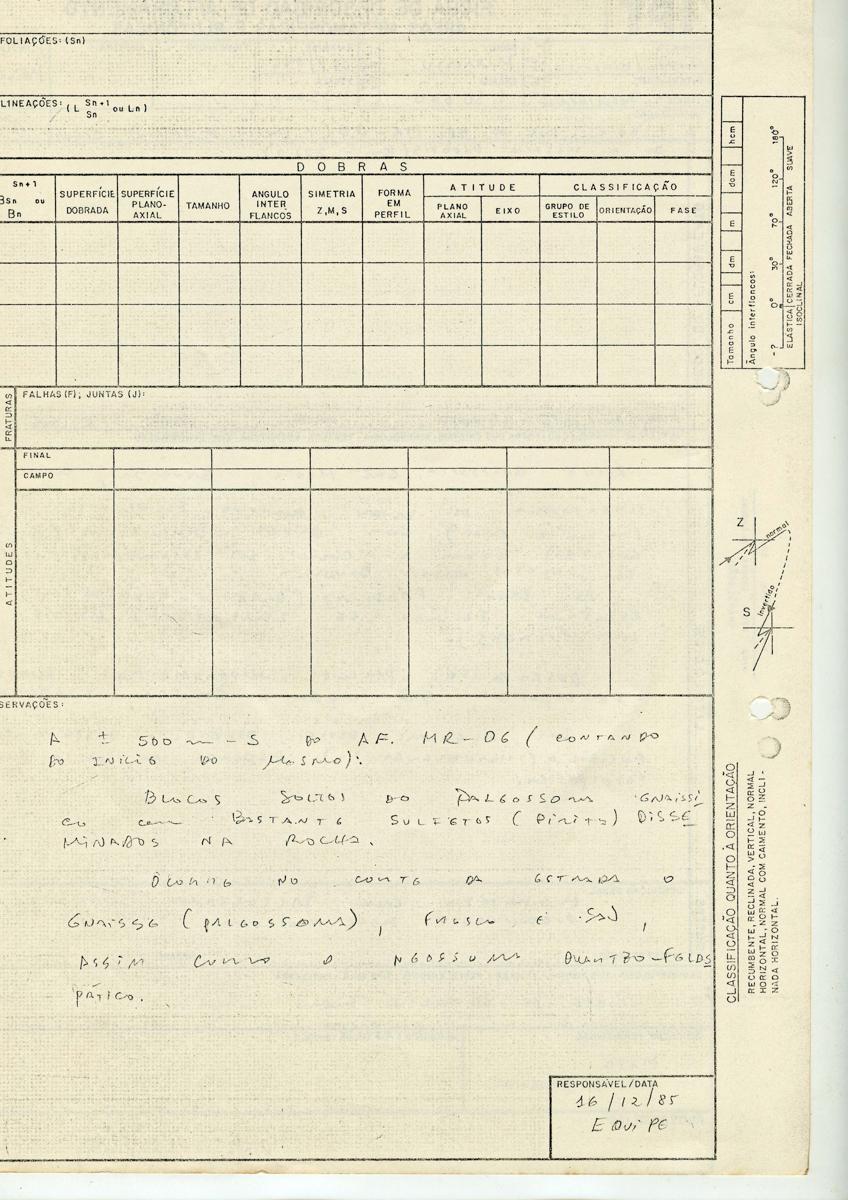 FOLIAÇÕES: (Sn)
LINEAÇÕES: (L Sn+1 Sn ou Ln)
DOBRAS
Sn+1
BSn ou
Bn
SUPERFÍCIE
DOBRADA
SUPERFÍCIE
PLANO-
AXIAL
TAMANHO
ANGULO
INTER
FLANCOS
SIMETRIA
Z,M,S
FORMA
EM
PERFIL
ATITUDE
PLANO
AXIAL
EIXO
CLASSIFICAÇÃO
GRUPO DE
ESTILO
ORIENTAÇÃO
FASE
FRATURAS
FALHAS (F); JUNTAS (J):
FINAL
CAMPO
ATITUDES
SERVAÇÕES:
A ± 500 m - S DO AF. MR-06 (CONTANDO
DO INÍCIO DO MESMO):
BLOCOS SOLTOS DO PALEOSSOMA GNAISSI
CO COM BASTANTE SULFETOS (PIRITA) DISSE
MINADOS NA ROCHA.
OCORRE NO CORTE DA ESTRADA O
GNAISSE (PALEOSSOMA), FRESCO E SÃO,
ASSIM COMO O NEOSSOMA QUARTZO-FELDS
PÁTICO.
RESPONSÁVEL/DATA
16/12/85
EQUIPE
Tamanho cm dm m dam hcm
Ângulo interflancos:
-? 0° 30° 70° 120° 180°
ELÁSTICA CERRADA FECHADA ABERTA SUAVE
ISOCLINAL
Z
normal
S
invertido
CLASSIFICAÇÃO QUANTO À ORIENTAÇÃO
RECUMBENTE, RECLINADA, VERTICAL, NORMAL
HORIZONTAL, NORMAL COM CAIMENTO, INCLI-
NADA HORIZONTAL.